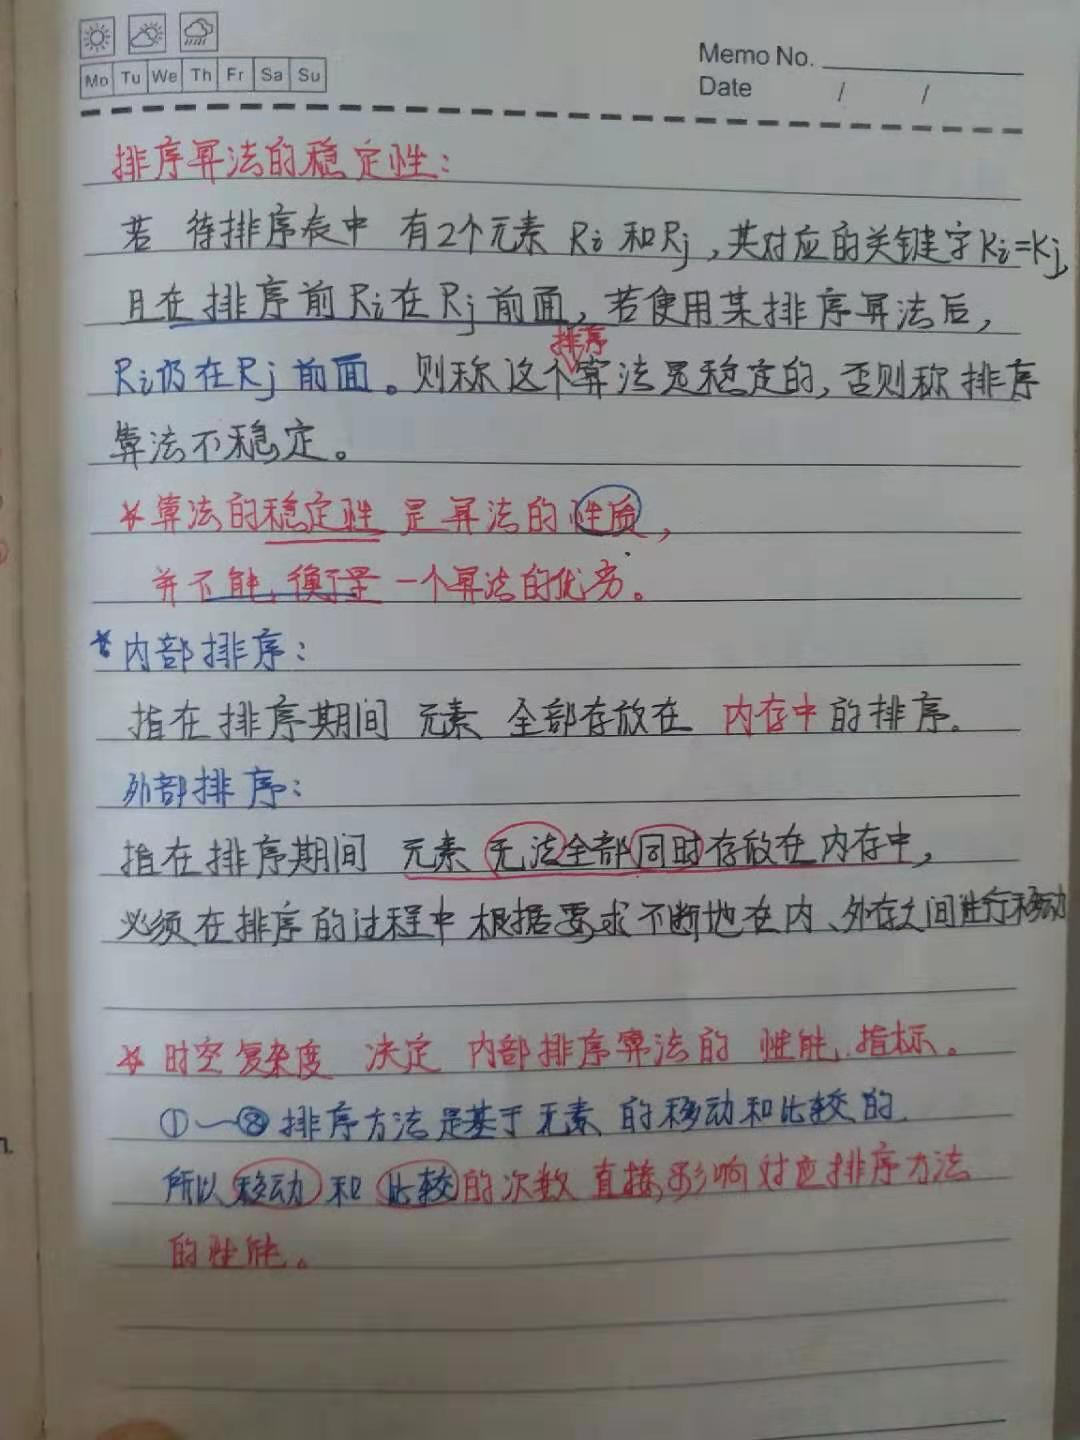 Mo Tu We Th Fr Sa Su
Memo No.
Date / /
排序算法的稳定性:
若 待排序表中 有2个元素 Ri 和Rj,其对应的关键字Ki=Kj,
且在排序前Ri在Rj前面,若使用某排序算法后,
Ri仍在Rj前面。则称这个排序算法是稳定的,否则称排序
算法不稳定。
*算法的稳定性 是算法的性质,
并不能衡量一个算法的优劣。
*内部排序:
指在排序期间 元素 全部存放在 内存中的排序.
外部排序:
指在排序期间 元素 无法全部同时存放在内存中,
必须在排序的过程中根据要求不断地在内、外存之间进行移动
* 时空复杂度 决定 内部排序算法的 性能指标。
①一⑧排序方法是基于元素的移动和比较的
所以移动和比较的次数直接影响对应排序方法
的性能。